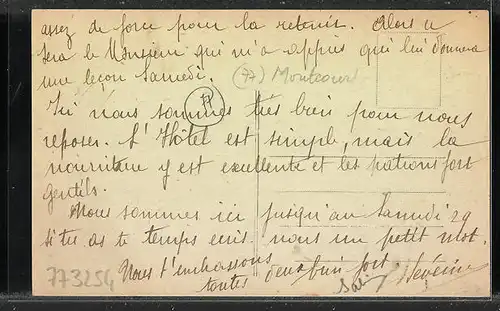 assez de force pour la retenir. Alors ce
sera le Monsieur qui m'a appris qui lui donnera
une leçon samedi.
(77) Montcourt
Ici nous sommes très bien pour nous
reposer. L'Hôtel est simple, mais la
nourriture y est excellente et les patrons fort
gentils.
Nous sommes ici jusqu'au Samedi 29
si tu as le temps ecris nous un petit mot.
Nous t'embrassons
toutes deux bien fort.
Séverine
773254